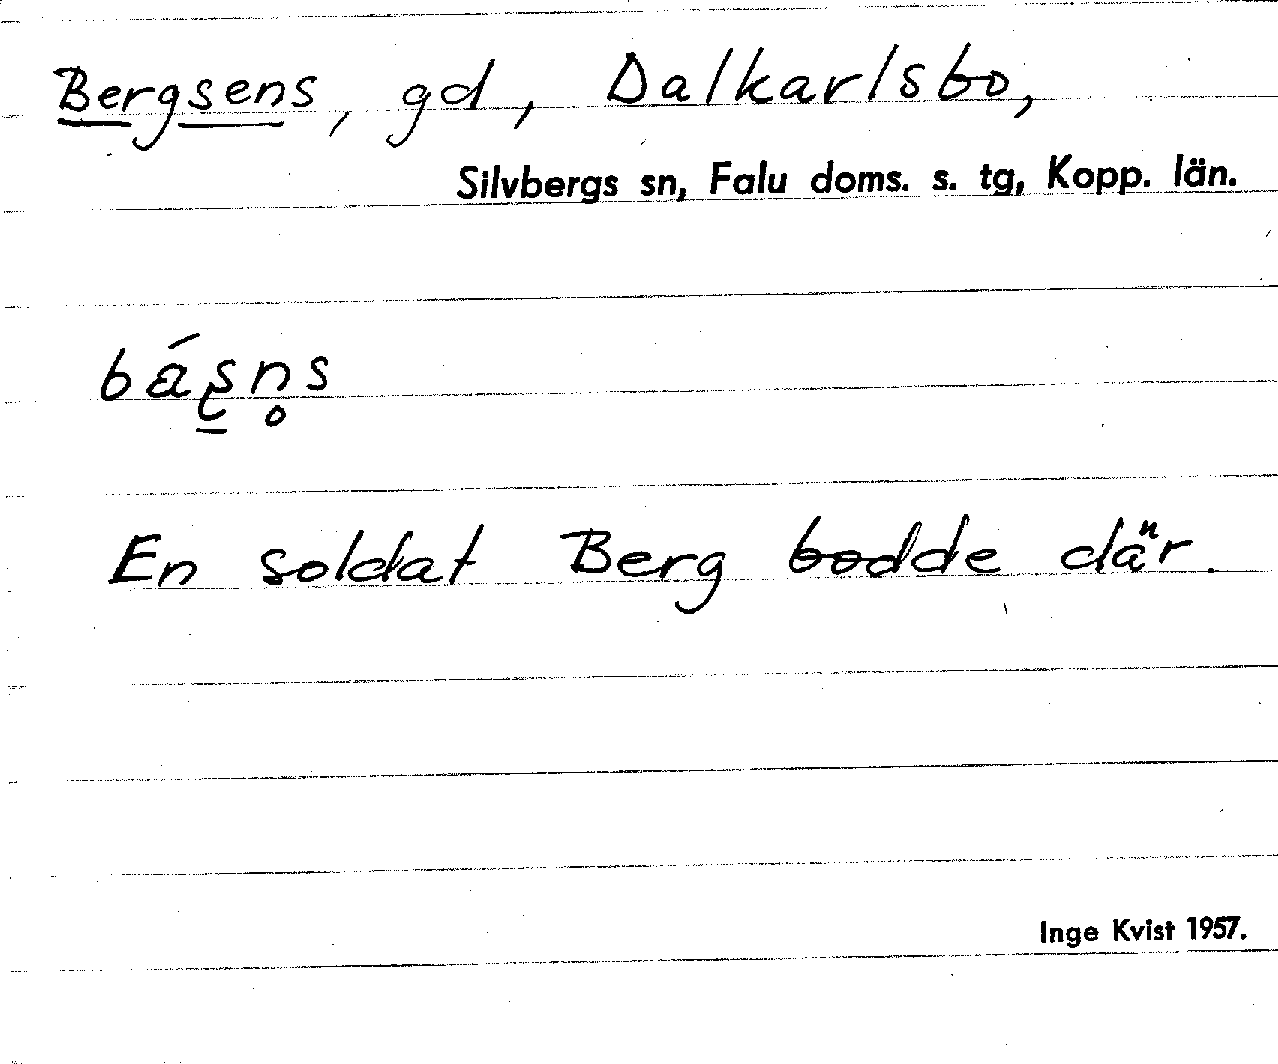 Bergsens, gd, Dalkarlsbo,
Silvbergs sn, Falu doms. s. tg, Kopp. län.
bá̠ʂn̥s
En soldat Berg bodde där.
Inge Kvist 1957.